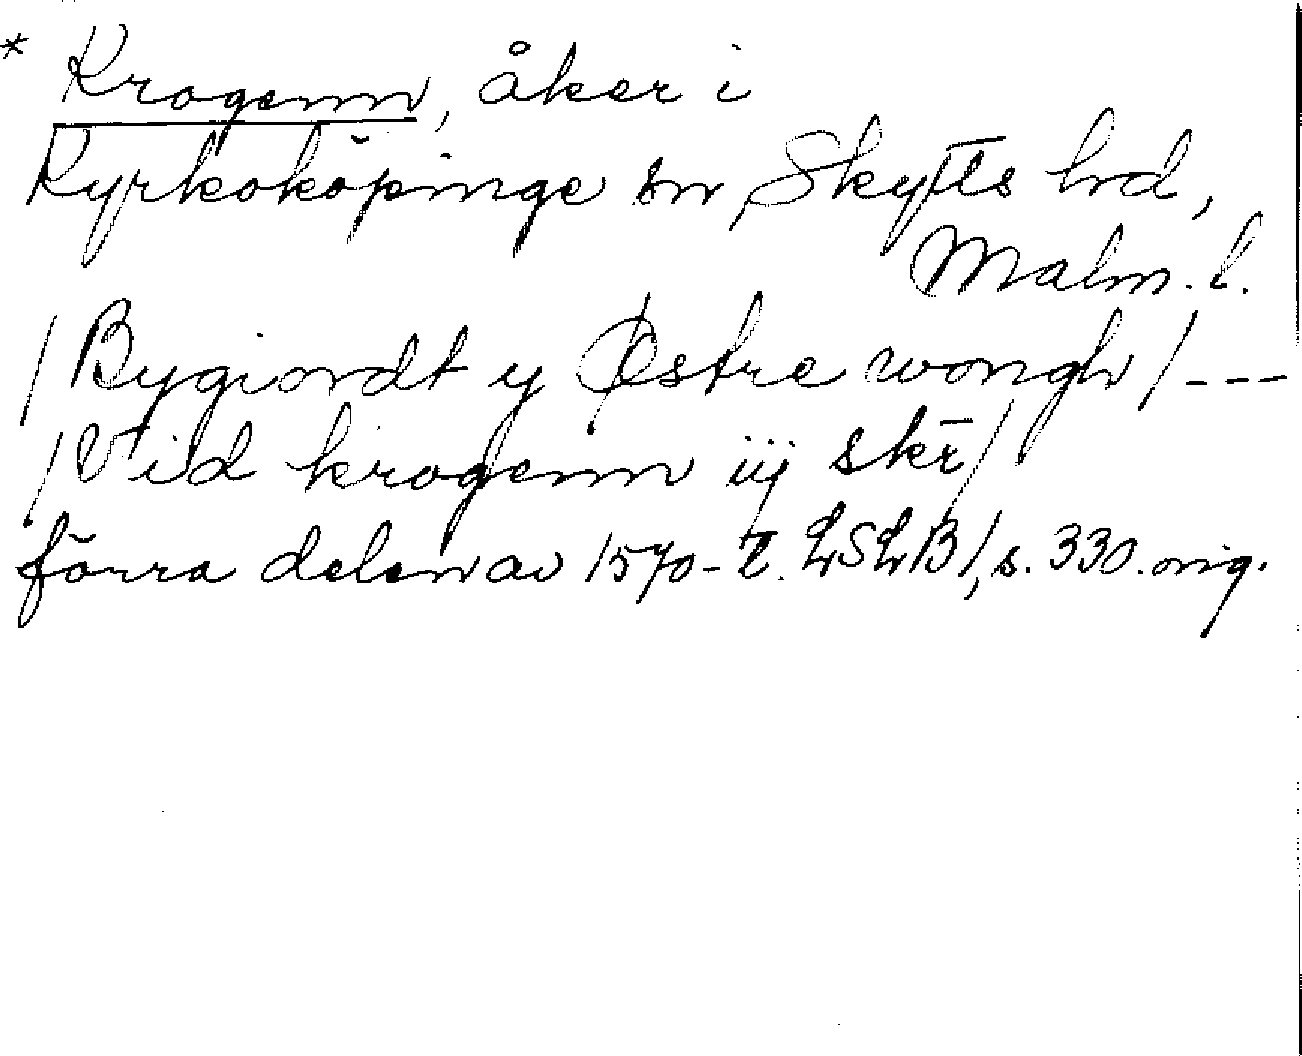 * Krogenn, åker i
Kyrkoköpinge sn, Skytts hd,
Malm. l.
/Bygiordt y Østre wongh/---
/Vid krogenn iij skr̄/
förra delen av 1570-t. LSLB/, s. 330. orig.